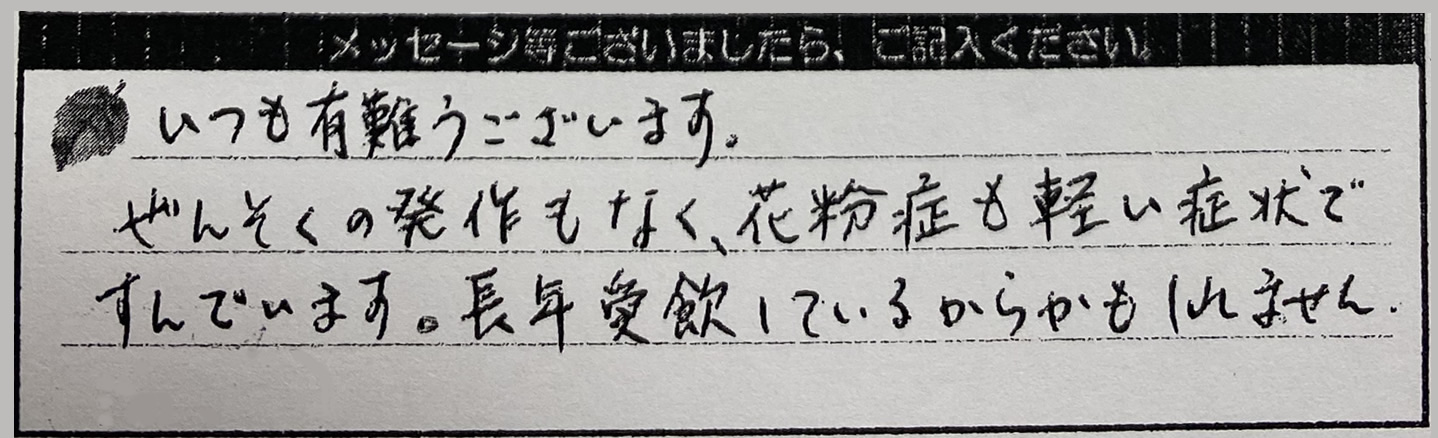 メッセージ等ございましたら、ご記入ください。
いつも有難うございます。
ぜんそくの発作もなく、花粉症も軽い症状で
すんでいます。長年愛飲しているからかもしれません.